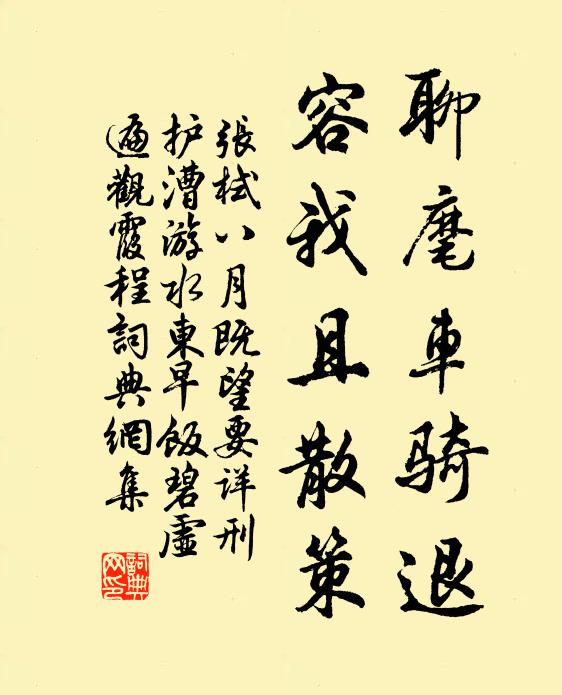 聊麾車騎退
容我且散策
張栻八月既望要详刑
护漕游水東早飯碧虛
遍觀霞程詞典網集
詞典網印